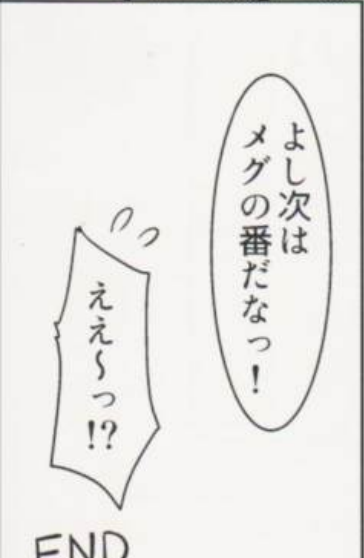 よし次は
メグの番だなっ!
ええ〜っ!?
END